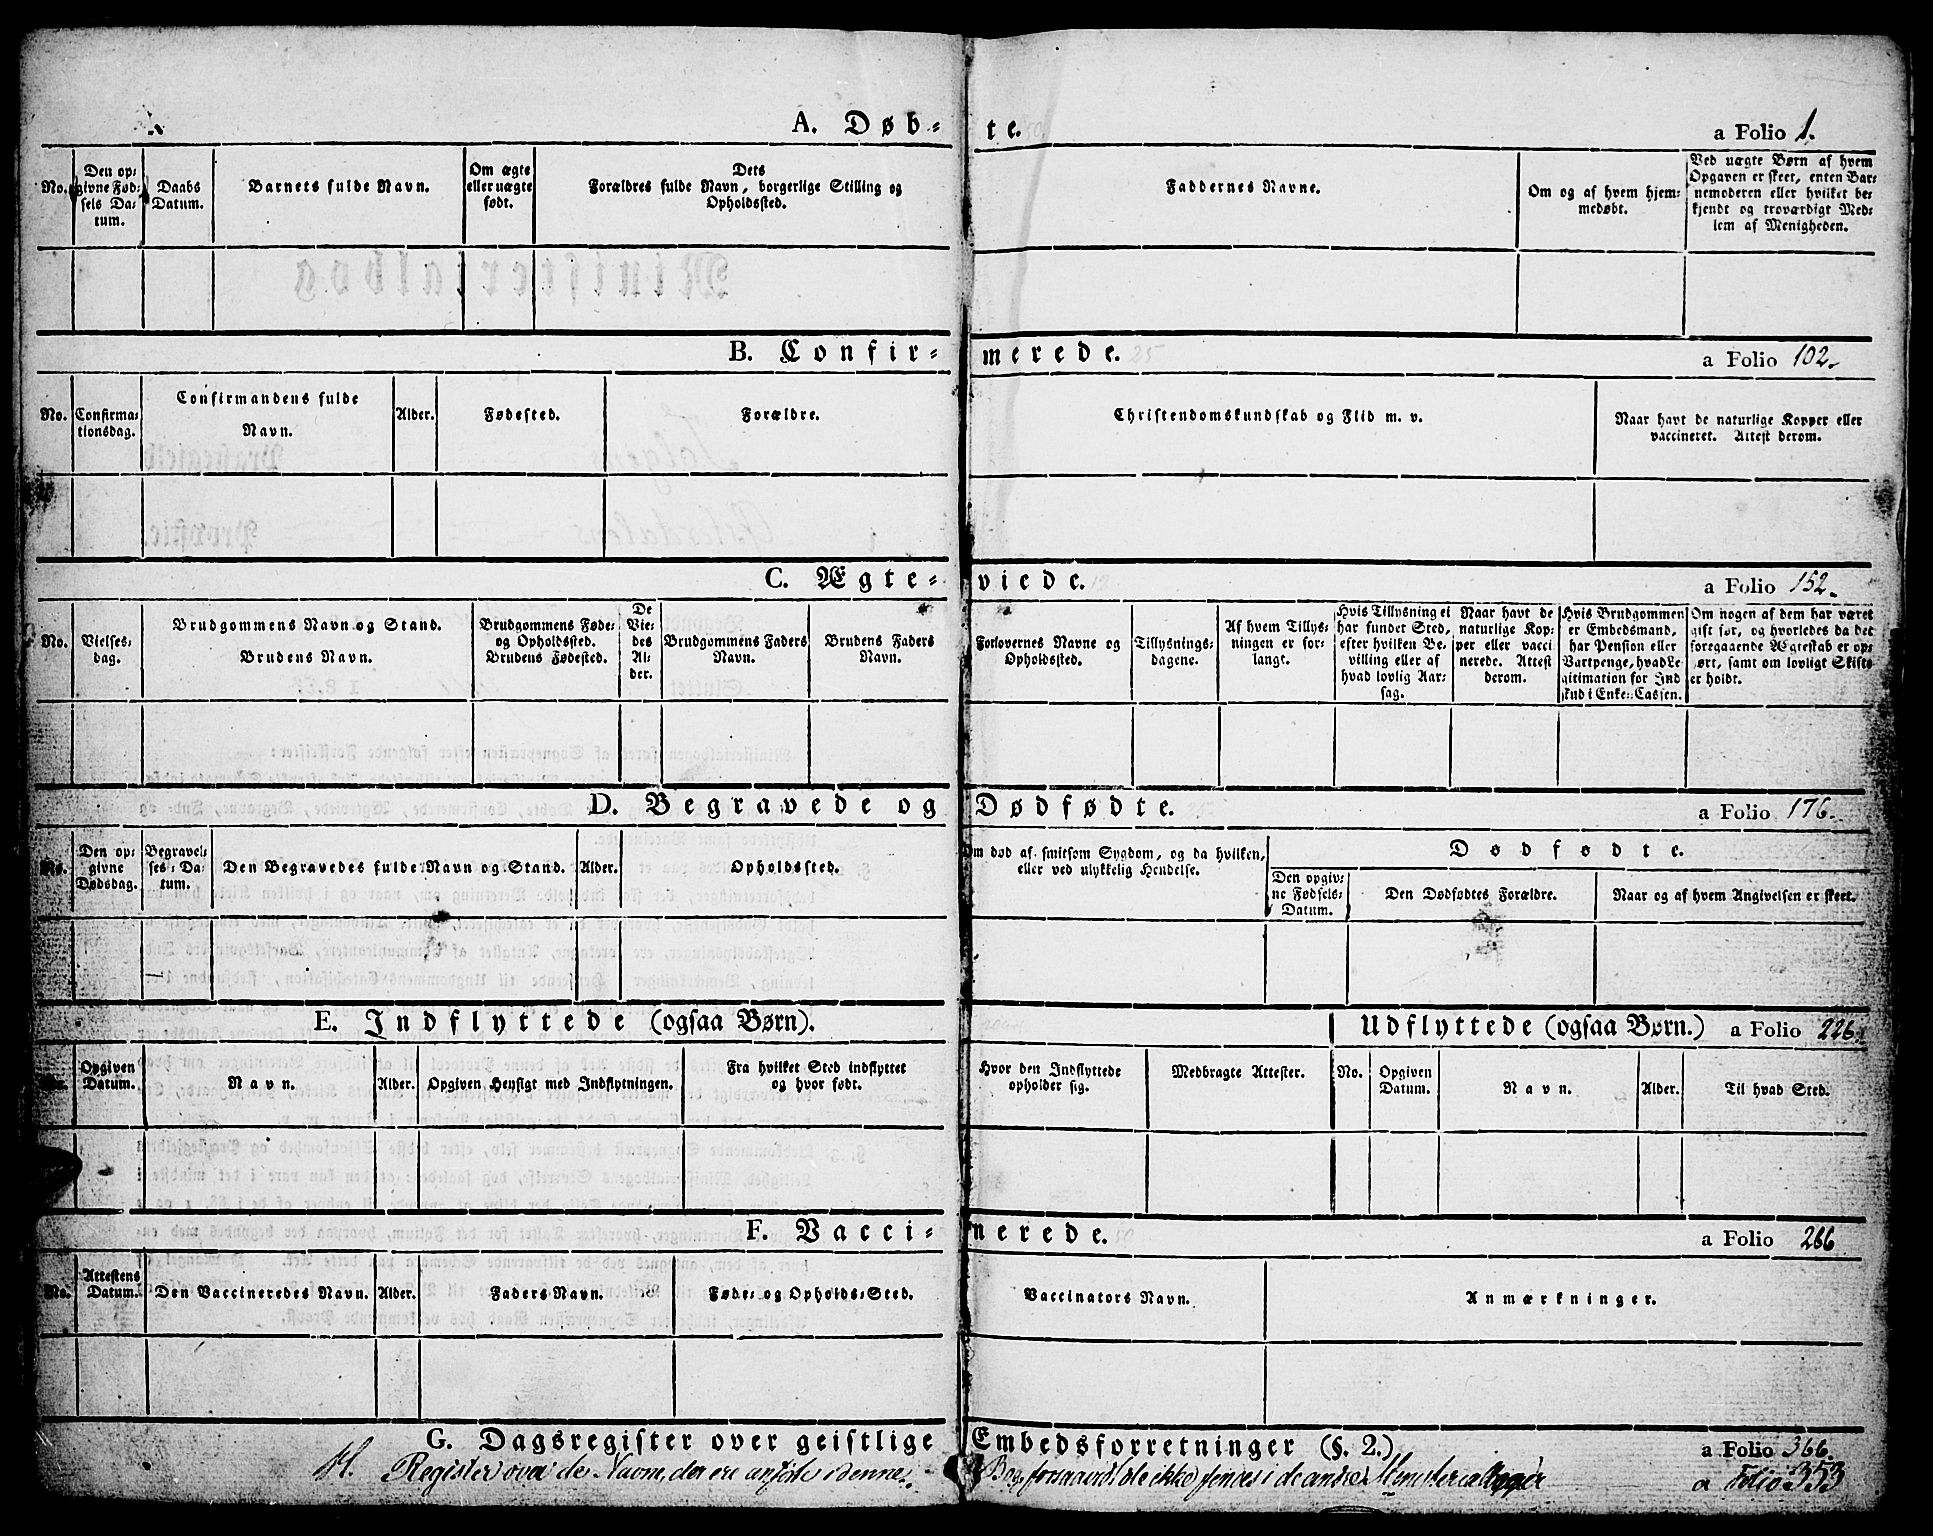 A. Døb-te. a Folio 1.
No.
Den op-
givne Fød-
sels Da-
tum.
Daabs
Datum.
Barnets fulde Navn.
Om ægte
eller uægte
født.
Dets
Forældres fulde Navn, borgerlige Stilling og
Opholdssted.
Faddernes Navne.
Om og af hvem hjem-
medøbt.
Ved uægte Børn af hvem
Opgaven er skeet, enten Bar-
nemoderen eller hvilket be-
kjendt og troværdigt Med-
lem af Menigheden.
B. Confir-merede. a Folio 102.
No.
Confirma-
tionsdag.
Confirmandens fulde
Navn.
Alder.
Fødested.
Forældre.
Christendomskundskab og Flid m. v.
Naar havt de naturlige Kopper eller
vaccineret. Attest derom.
C. Ægte-viede. a Folio 152.
No.
Vielses-
dag.
Brudgommens Navn og Stand.
Brudens Navn.
Brudgommens Føde-
og Opholdssted.
Brudens Fødested.
De
Vie-
des
Al-
der.
Brudgommens Faders
Navn.
Brudens Faders
Navn.
Forlovernes Navne og
Opholdssted.
Tillysnings-
dagene.
Af hvem Tillys-
ningen er for-
langt.
Hvis Tillysning ei
har fundet Sted,
efter hvilken Be-
villing eller af
hvad lovlig Aar-
sag.
Naar havt de
naturlige Kop-
per eller vacci
nerede. Attest
derom.
Hvis Brudgommen
er Embedsmand,
har Pension eller
Vartpenge, hvad Le-
gitimation for Ind
skud i Enke-Cassen.
Om nogen af dem har været
gift før, og hvorledes da det
foregaaende Ægtestab er op-
ørt, samt om lovligt Skifte
er holdt.
D. Begravede og Dødfødte. a Folio 176.
No.
Den op-
givne
Dødsdag.
Begravel-
ses-Da-
tum.
Den Begravedes fulde Navn og Stand.
Alder.
Opholdssted.
Om død af smitsom Sygdom, og da hvilken,
eller ved ulykkelig Hendelse.
Dødfødte.
Den opgiv-
ne Fødsels-
Datum.
Den Dødfødtes Forældre.
Naar og af hvem Angivelsen er skeet.
E. Indflyttede (ogsaa Børn).
Udflyttede (ogsaa Børn.) a Folio 226.
No.
Opgiven
Datum.
Navn.
Alder.
Opgiven Hensigt med Indflytningen.
Fra hvilket Sted indflyttet
og hvor født.
Hvor den Indflyttede
opholder sig.
Medbragte Attester.
No.
Opgiven
Datum.
Navn.
Alder.
Til hvad Sted.
F. Vacci-nerede. a Folio 266
No.
Attestens
Datum.
Den Vaccineredes Navn.
Alder.
Faders Navn.
Føde- og Opholds-Sted.
Vaccinators Navn.
Anmærkninger.
G. Dagsregister over geistlige Embedsforretninger (§. 2.) a Folio 366
H. Register over de Navne, der ere anførte i denne Bog, forsaavidt de ikke findes i de andre Ministerialbøger a Folio 353